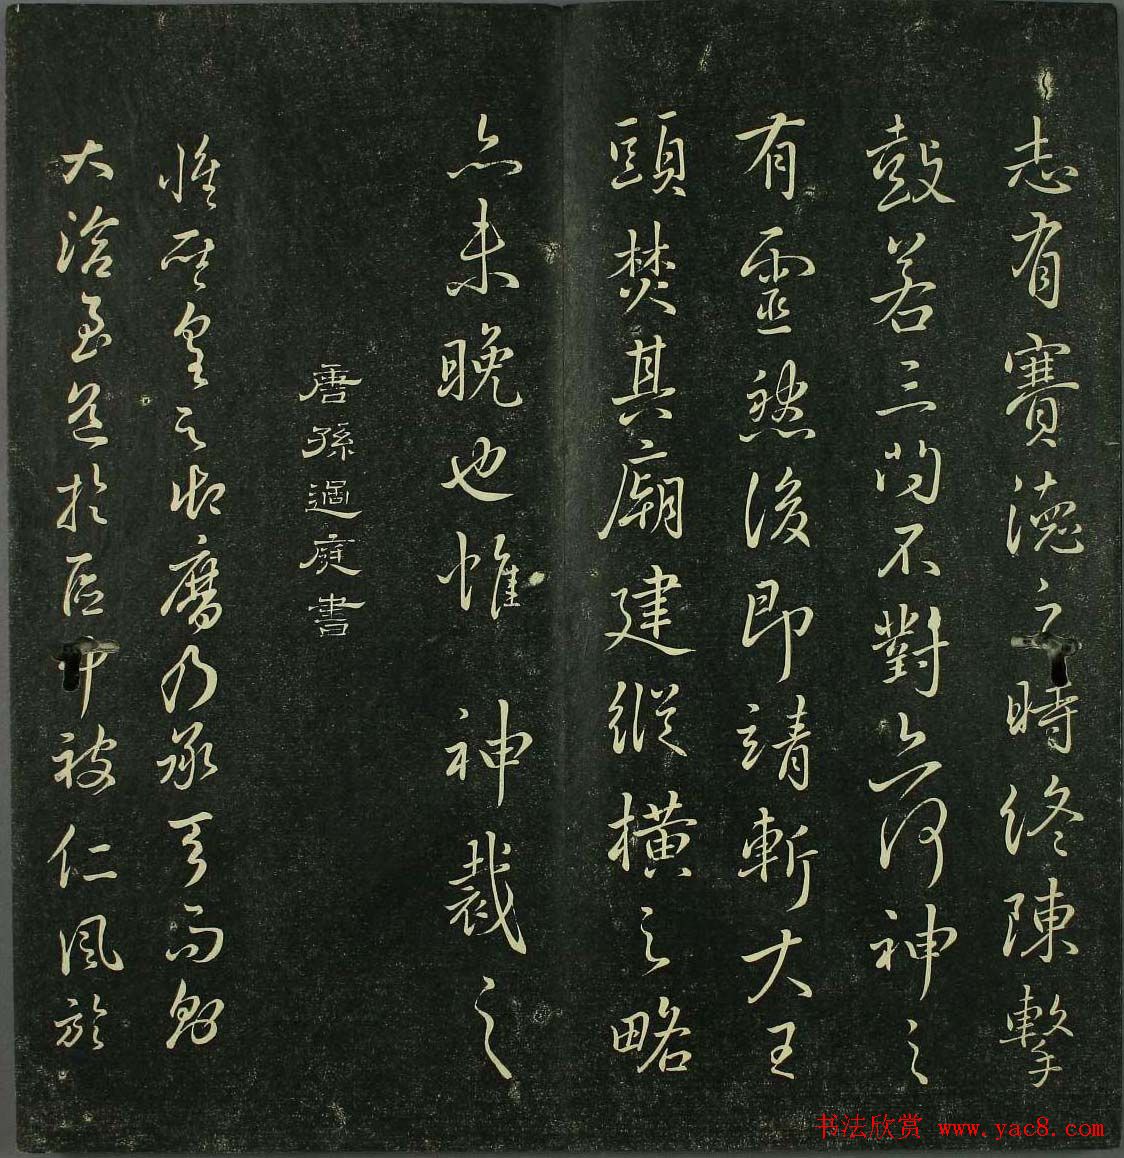 志有賽德之時終陳擊
鼓若三問不對亦何神之
有靈然後即靖斬大王
頭焚其廟建縱橫之略
亦未晚也惟 神裁之
唐孫過庭書
惟聖皇之御曆乃承天而則
大洽至道於區中被仁風於
书法欣赏 www.yac8.com